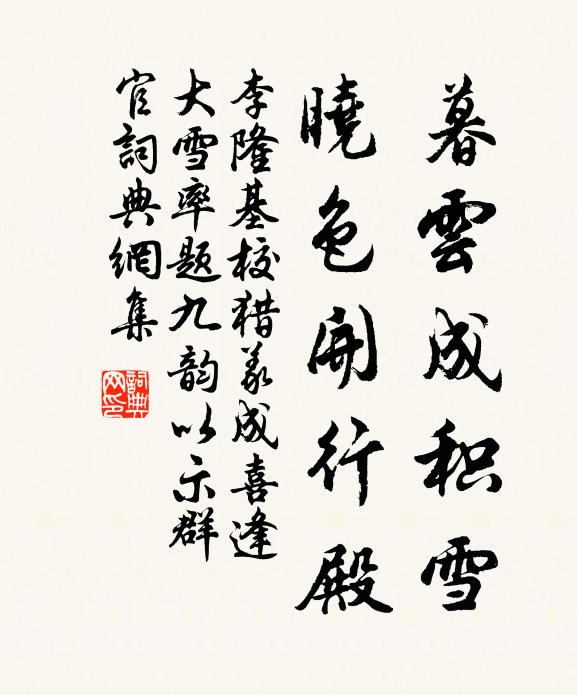 暮雲成积雪
曉色開行殿
李隆基校猎義成喜逢
大雪率题九韵以示群
官詞典網集
詞典
网印